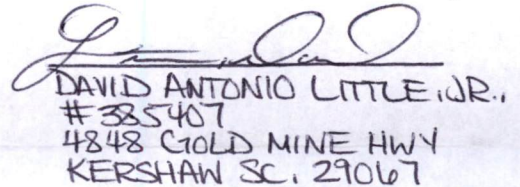 DAVID ANTONIO LITTLE, JR.,
#385407
4848 GOLD MINE HWY
KERSHAW SC. 29067